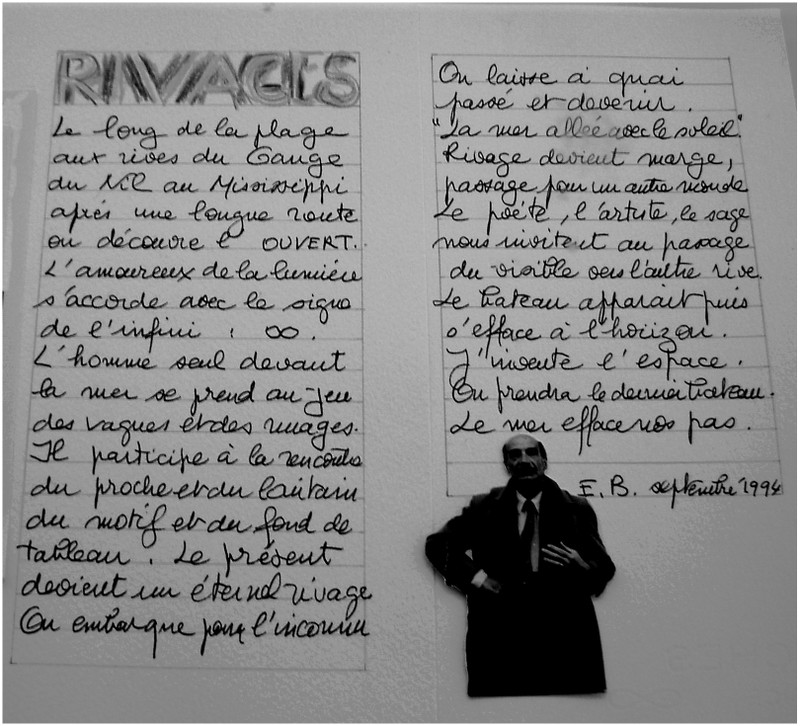 RIVAGES
Le long de la plage
aux rives du Gange
du Nil au Mississippi
après une longue route
on découvre l'OUVERT.
L'amoureux de la lumière
s'accorde avec le signe
de l'infini : ∞.
L'homme seul devant
la mer se prend au jeu
des vagues et des nuages.
Il participe à la rencontre
du proche et du lointain
du motif et du fond de
tableau. Le présent
devient un éternel rivage
On embarque pour l'inconnu
On laisse à quai
passé et devenir.
"La mer allée avec le soleil"
Rivage devient marge,
passage pour un autre monde
Le poète, l'artiste, le sage
nous invitent au passage
du visible vers l'autre rive.
Le bateau apparait puis
s'efface à l'horizon.
J'invente l'espace.
On prendra le dernier bateau.
La mer efface nos pas.
E. B. septembre 1994